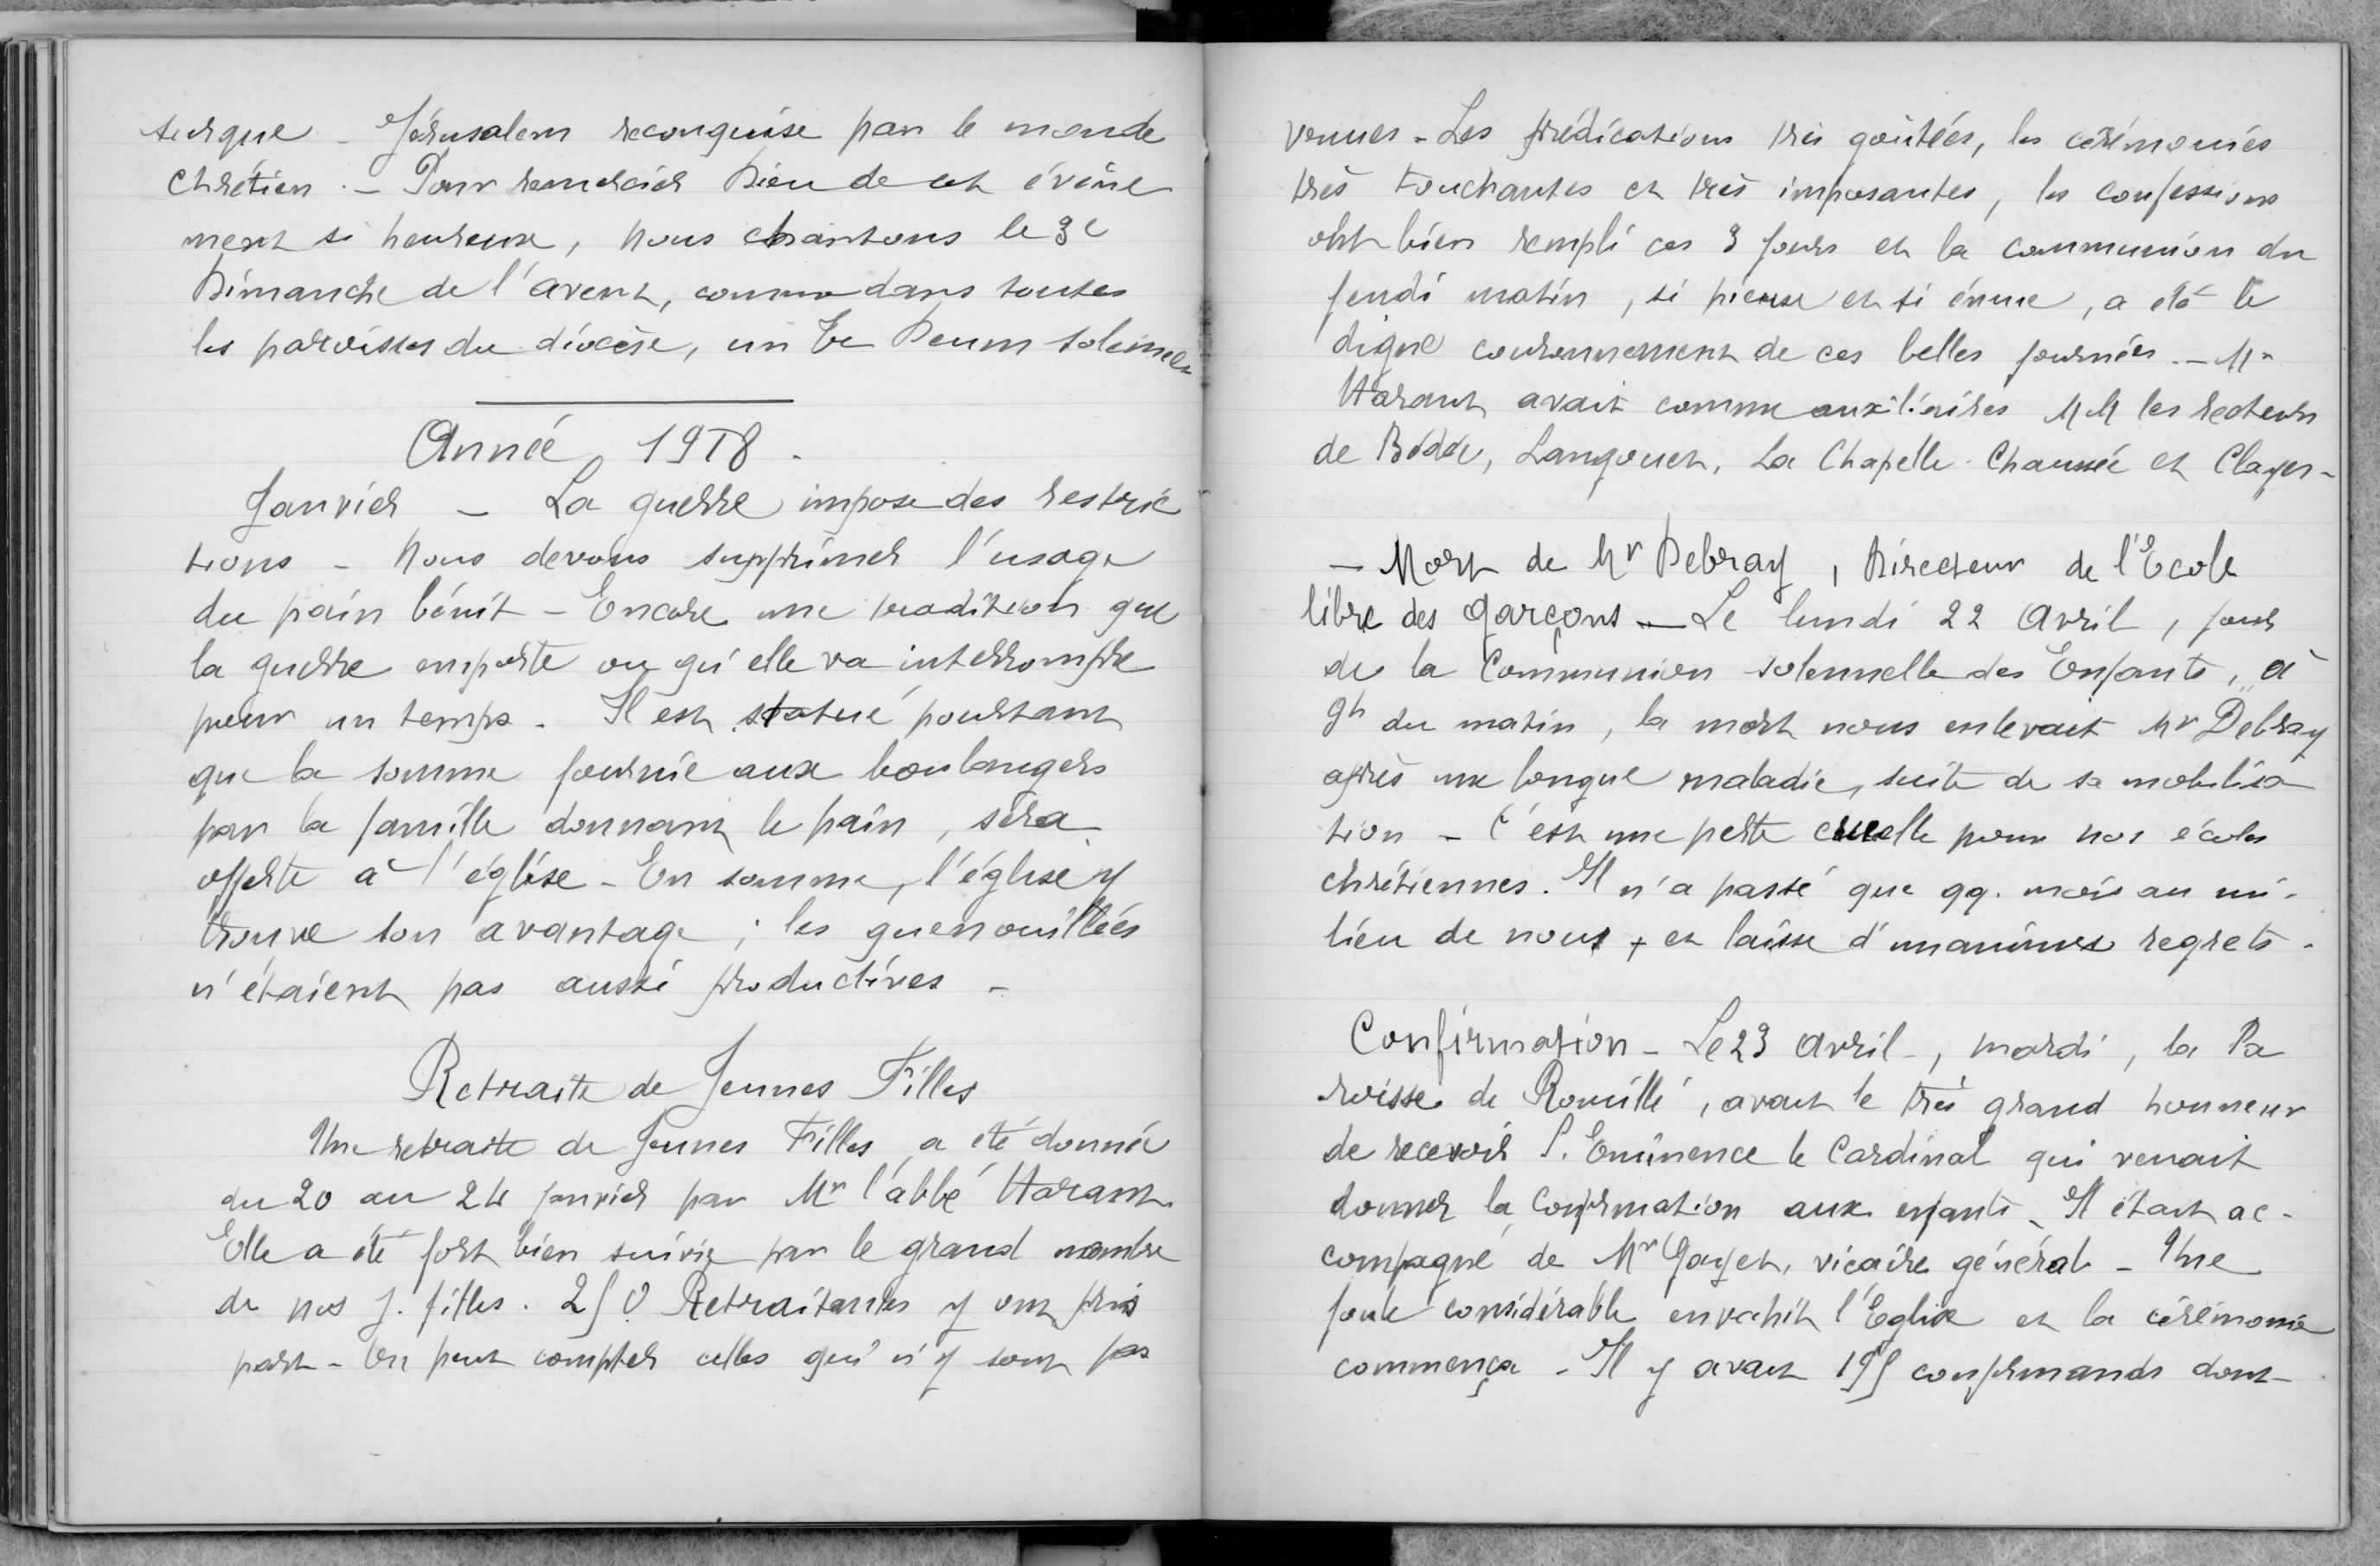 turque - Jérusalem reconquise par le monde
chrétien. - Pour remercier Dieu de cet évène
ment si heureux, nous chantons le 3e
Dimanche de l'avent, comme dans toutes
les paroisses du diocèse, un Te Deum solennel
Année 1918.
Janvier - La guerre impose des restric
tions - Nous devons supprimer l'usage
du pain bénit - Encore une tradition que
la guerre emporte ou qu'elle va interrompre
pour un temps. Il est statué pourtant
que la somme fournie aux boulangers
par la famille donnant le pain, sera
offerte à l'église - En somme, l'église y
trouve son avantage ; les quenouillées
n'étaient pas aussi productives -
Retraite de Jeunes Filles
Une retraite de Jeunes Filles a été donnée
du 20 au 24 janvier par Mr l'abbé Harant.
Elle a été fort bien suivie par le grand nombre
de nos j. filles. 250 Retraitantes y ont pris
part - On peut compter celles qui n'y sont pas
venues - Les prédications très goûtées, les cérémonies
très touchantes et très imposantes, les confessions
ont bien rempli ces 3 jours et la communion du
jeudi matin, si pieuse et si émue, a été le
digne couronnement de ces belles journées. - Mr
Harant avait comme auxiliaires MM les recteurs
de Bédée, Langouet, La Chapelle Chaussée et Clayes -
- Mort de Mr Debray, Directeur de l'Ecole
libre des garçons - Le lundi 22 Avril, jour
de la Communion solennelle des Enfants, à
9h du matin, la mort nous enlevait Mr Debray
après une longue maladie, suite de sa mobilisa
tion - C'est une perte cruelle pour nos écoles
chrétiennes. Il n'a passé que qq. mois au mi-
lieu de nous, et laisse d'unanimes regrets.
Confirmation - Le 23 Avril -, mardi, la Pa
roisse de Romillé, avait le très grand honneur
de recevoir S. Eminence le Cardinal qui venait
donner la confirmation aux enfants - Il était ac-
compagné de Mr Gayet, vicaire général - Une
foule considérable envahit l'Eglise et la cérémonie
commença - Il y avait 195 confirmands dont